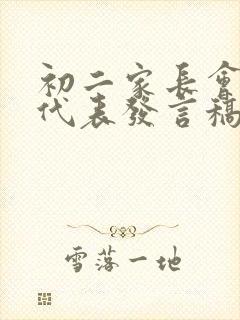 初二家長會
代表發言稿
雪落一地